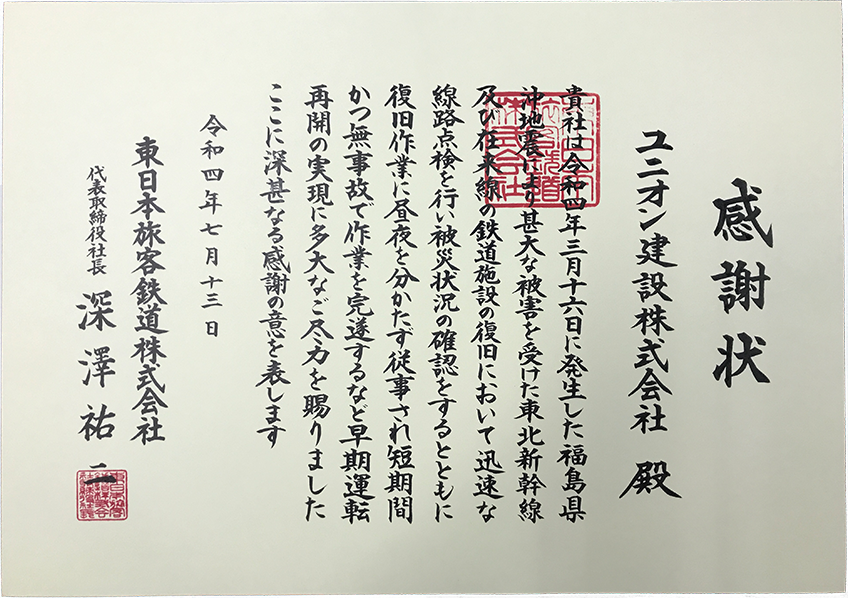 感謝状
ユニオン建設株式会社 殿
貴社は令和四年三月十六日に発生した福島県
沖地震により甚大な被害を受けた東北新幹線
及び在来線の鉄道施設の復旧において迅速な
線路点検を行い被災状況の確認をするとともに
復旧作業に昼夜を分かたず従事され短期間
かつ無事故で作業を完遂するなど早期運転
再開の実現に多大なご尽力を賜りました
ここに深甚なる感謝の意を表します
令和四年七月十三日
東日本旅客鉄道株式会社
代表取締役社長 深澤祐二